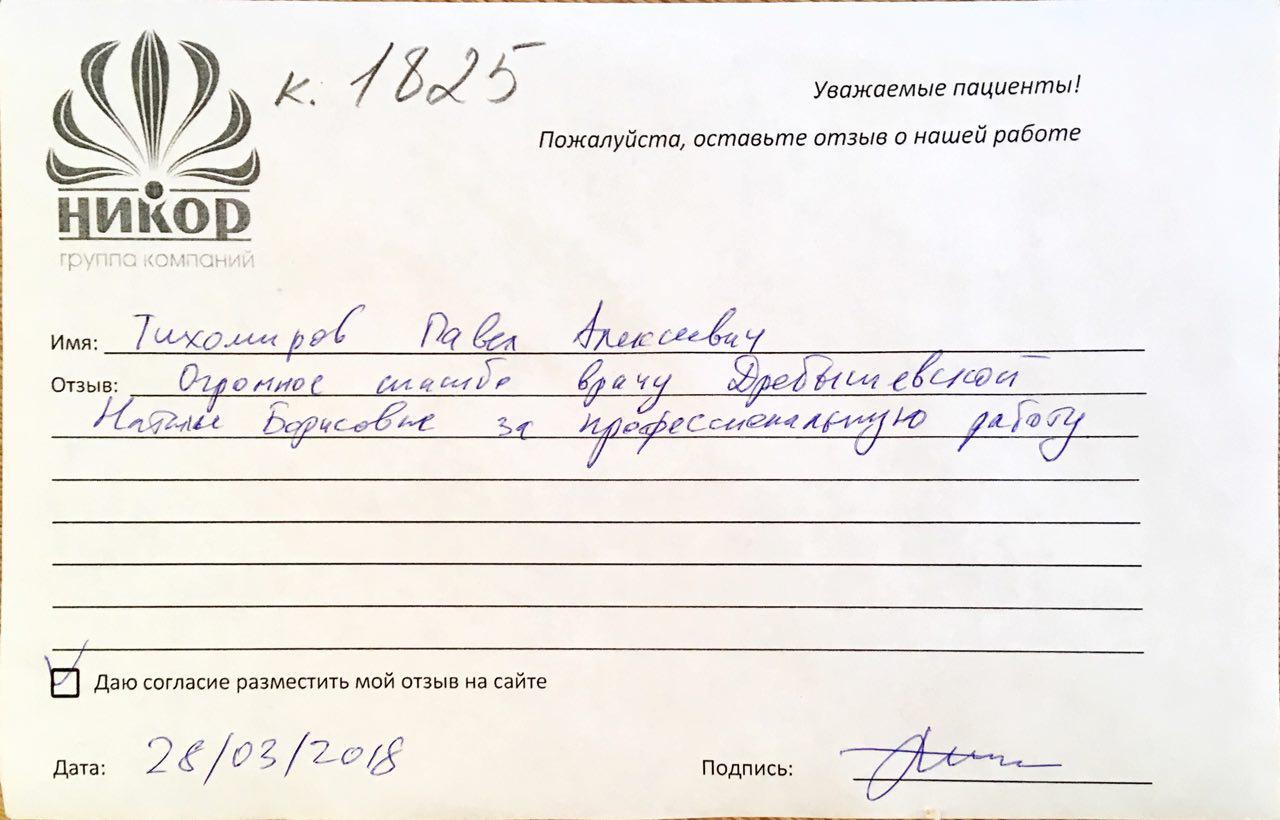 к. 1825
НИКОР
группа компаний
Уважаемые пациенты!
Пожалуйста, оставьте отзыв о нашей работе
Имя: Тихомиров Павел Алексеевич
Отзыв: Огромное спасибо врачу Дребышевской
Наталье Борисовне за профессиональную работу
Даю согласие разместить мой отзыв на сайте
Дата: 28/03/2018
Подпись: